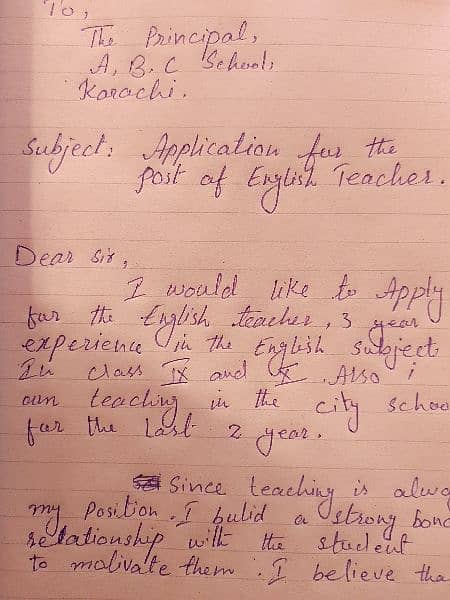 To,
The Principal,
A, B, C School,
Karachi.
Subject: Application for the
post of English Teacher.
Dear Sir,
I would like to Apply
for the English teacher, 3 year
experience in the English subject
In class IX and X. Also i
am teaching in the city schoo
for the last 2 year.
Since teaching is alwa
my Position. I bulid a strong bond
relationship with the student
to motivate them. I believe tha